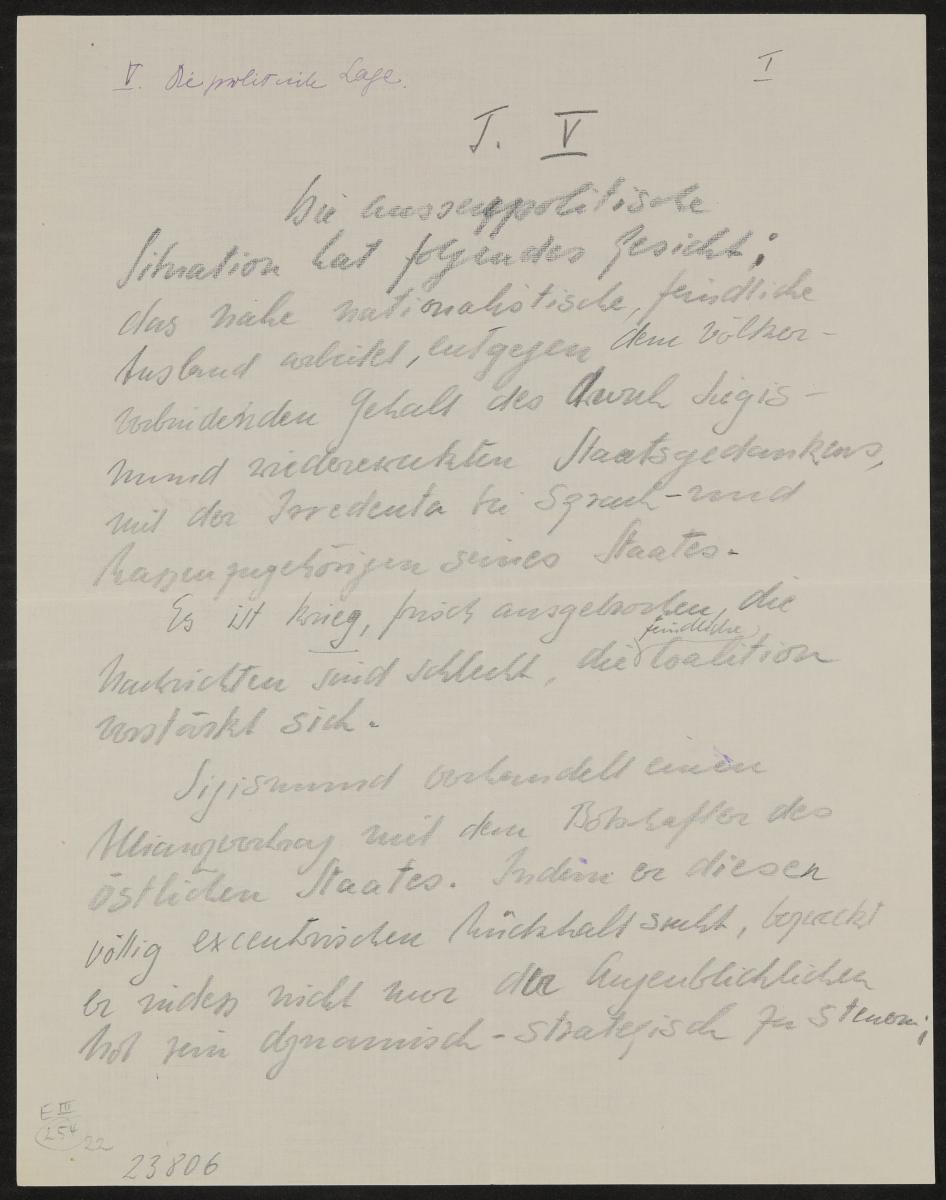 V. Die politische Lage.
I
T. V
Die aussenpolitische
Situation hat folgendes Gesicht;
das nahe nationalistische, feindliche
Ausland arbeitet, entgegen dem völker-
verbindenden Gehalt des durch Sigis-
mund wiedererweckten Staatsgedankens,
mit der Irredenta bei Sprach- und
Rassenzugehörigen seines Staates.
Es ist Krieg, frisch ausgebrochen, die
Nachrichten sind schlecht, die feindliche Coalition
verstärkt sich.
Sigismund verhandelt einen
Allianzvertrag mit dem Botschafter des
östlichen Staates. Indem er diesen
völlig excentrischen Rückhalt sucht, bezweckt
er indess nicht nur der Augenblicklichen
Not rein dynamisch-strategisch zu steuern;
E III
254 22
23806